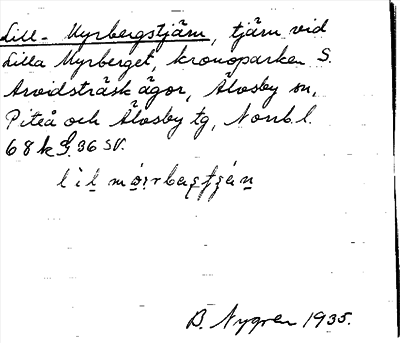 Lill-Myrbergstjärn, tjärn vid
Lilla Myrberget, kronoparken S.
Arvidsträsk ägor, Älvsby sn,
Piteå och Älvsby tg, Norrb. l.
68 k 9. 36 SV.
B. Nygren 1935.